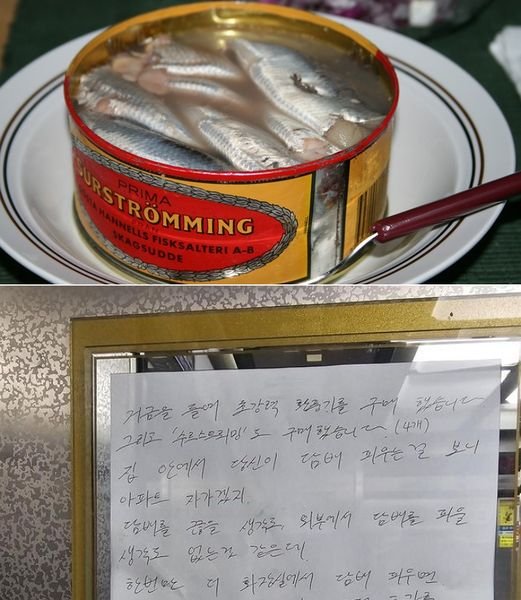 PRIMA
SURSTRÖMMING
HANNELLS FISKSALTERI A-B
SKAGSUDDE
저금을 들여 초강력 환풍기를 구매 했습니다
그리고 '수르스트뢰밍'도 구매했습니다. (4개)
집 안에서 당신이 담배 피우는걸 보니
아파트 자가겠지.
담배를 끊을 생각도, 외부에서 담배를 피울
생각도 없는것 같은데.
한번만 더 화장실에서 담배 피우면